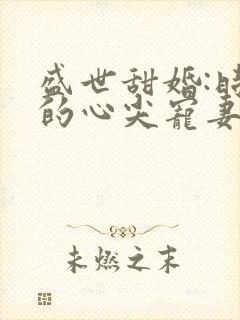 盛世甜婚:时
的心尖宠妻
未燃之末